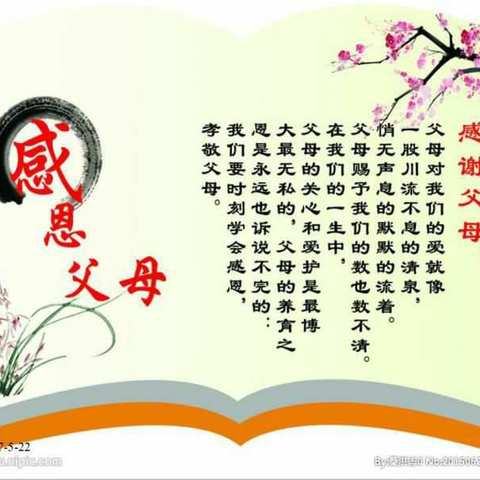 感恩父母
感谢父母
父母对我们的爱就像
一股川流不息的清泉，
悄无声息的默默的流着。
父母赐予我们的数也数不清。
在我们的一生中，
父母的关心和爱护是最博
大最无私的，父母的养育之
恩是永远也诉说不完的：
我们要时刻学会感恩，
孝敬父母。
7-5-22
.nipic.com/